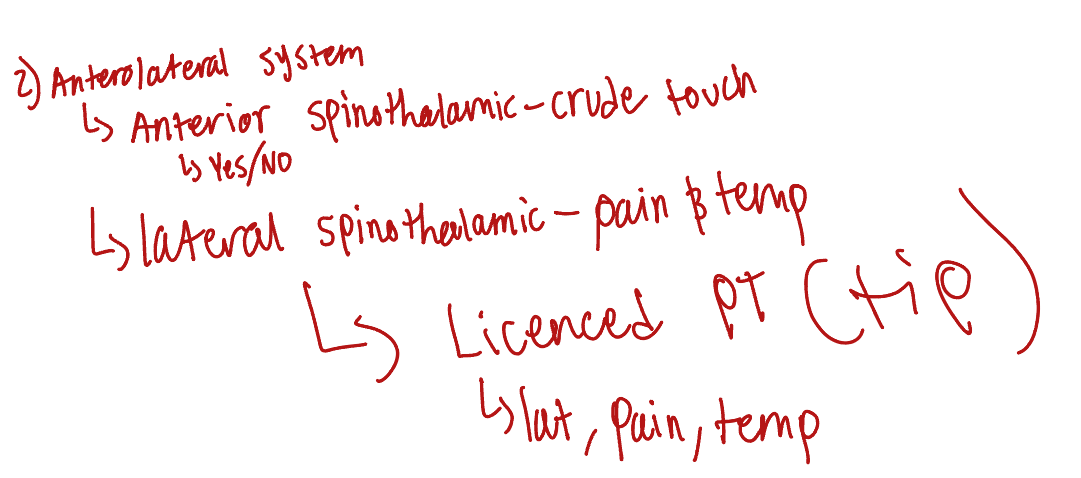 2) Anterolateral system
↳ Anterior spinothalamic - crude touch
↳ Yes/No
↳ lateral spinothalamic - pain & temp
↳ Licenced PT (tip)
↳ lat, pain, temp